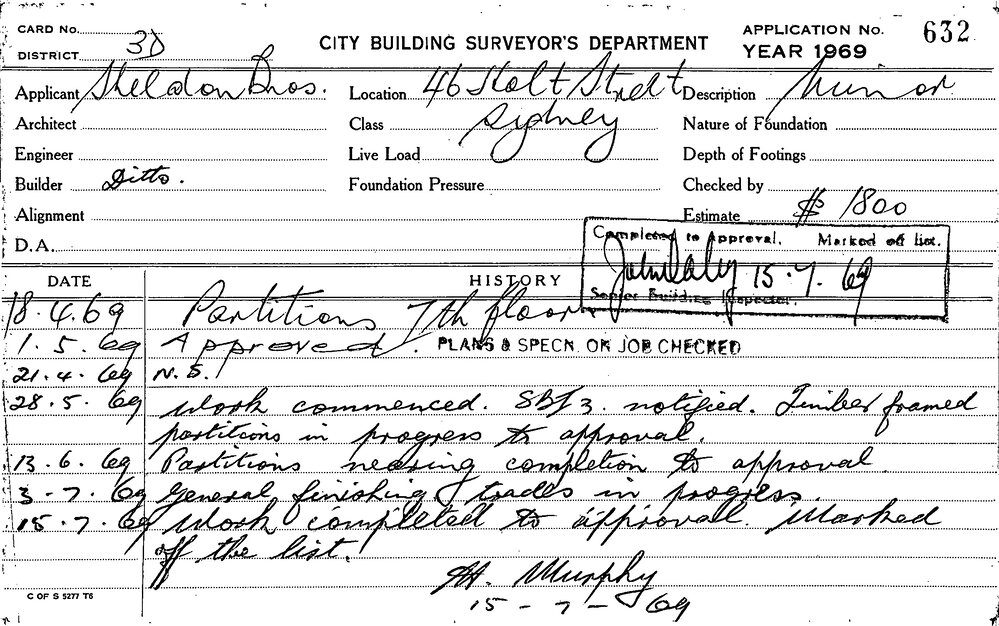 CARD No.
DISTRICT 3D
CITY BUILDING SURVEYOR'S DEPARTMENT
APPLICATION No. 632
YEAR 1969
Applicant Sheldon Bros. Location 46 Holt Street Description Minor
Architect Class Sydney Nature of Foundation
Engineer Live Load Depth of Footings
Builder Ditto. Foundation Pressure Checked by
Alignment Estimate $ 1800
D.A.
Completed to Approval. Marked off list.
15.7.69
Senior Building Inspector.
DATE HISTORY
18.4.69 Partitions 7th floor
1.5.69 Approved. PLANS & SPECN. ON JOB CHECKED
21.4.69 N.S.
28.5.69 Work commenced. SBI 3. notified. Timber framed
partitions in progress to approval.
13.6.69 Partitions nearing completion to approval.
3-7.69 General finishing trades in progress.
15.7.69 Work completed to approval. Marked
off the list.
H. Murphy
15-7-69
C OF S 5277 T6